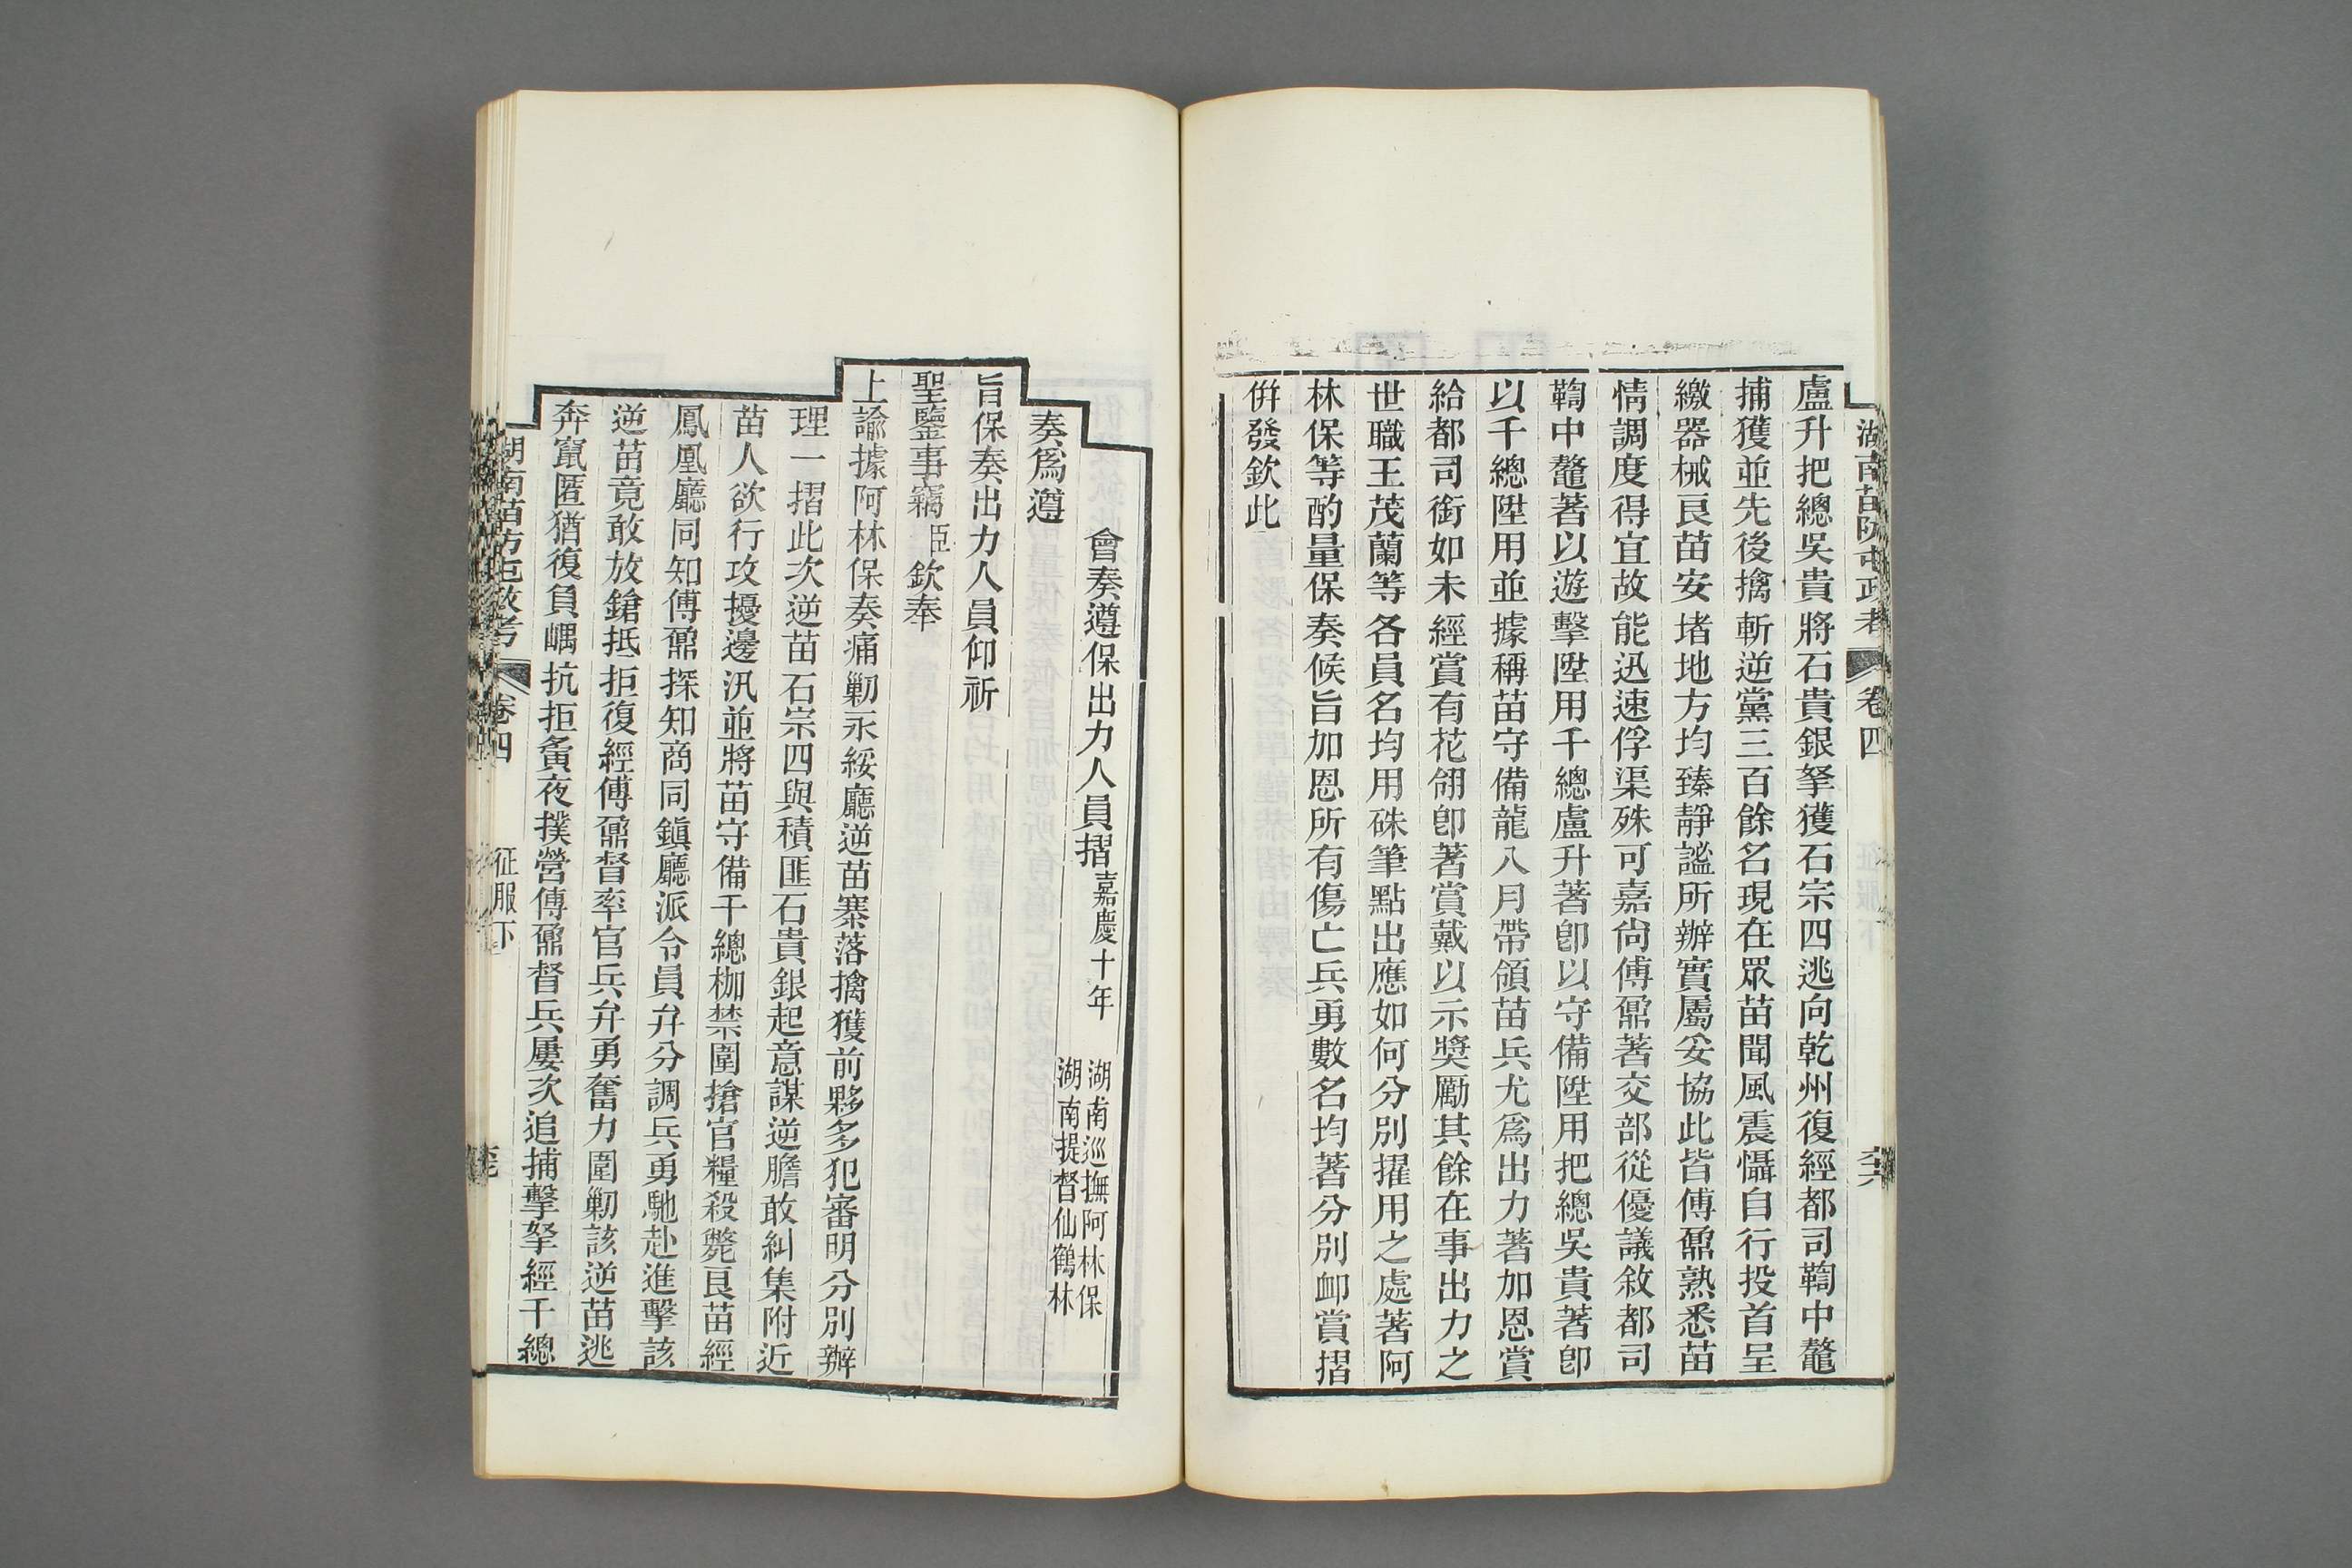 湖南苗防屯政考 卷四 六六
盧升把總吳貴將石貴銀拏獲石宗四逃向乾州復經都司鞫中鼇
捕獲並先後擒斬逆黨三百餘名現在眾苗聞風震慑自行投首呈
繳器械良苗安堵地方均臻靜謐所辦實屬妥協此皆傅鼐熟悉苗
情調度得宜故能迅速俘渠殊可嘉尙傅鼐著交部從優議敘都司
鞫中鼇著以遊擊陞用千總盧升著卽以守備陞用把總吳貴著卽
以千總陞用並據稱苗守備龍八月帶領苗兵尤爲出力著加恩賞
給都司銜如未經賞有花翎卽著賞戴以示獎勵其餘在事出力之
世職王茂蘭等各員名均用硃筆點出應如何分別擢用之處著阿
林保等酌量保奏候旨加恩所有傷亡兵勇數名均著分別卹賞摺
倂發欽此
會奏遵保出力人員摺嘉慶十年 湖南巡撫阿林保
湖南提督仙鶴林
奏爲遵
旨保奏出力人員仰祈
聖鑒事竊臣欽奉
上諭據阿林保奏痛勦永綏廳逆苗寨落擒獲前夥多犯審明分別辦
理一摺此次逆苗石宗四與積匪石貴銀起意謀逆膽敢糾集附近
苗人欲行攻擾邊汛並將苗守備千總枷禁圍搶官糧殺斃良苗經
鳳凰廳同知傅鼐探知商同鎭廳派令員弁分調兵勇馳赴進擊該
逆苗竟敢放鎗抵拒復經傅鼐督率官兵弁勇奮力圍勦該逆苗逃
奔竄匿猶復負嵎抗拒夤夜撲營傅鼐督兵屢次追捕擊拏經千總
湖南苗防屯政考 卷四 征服下